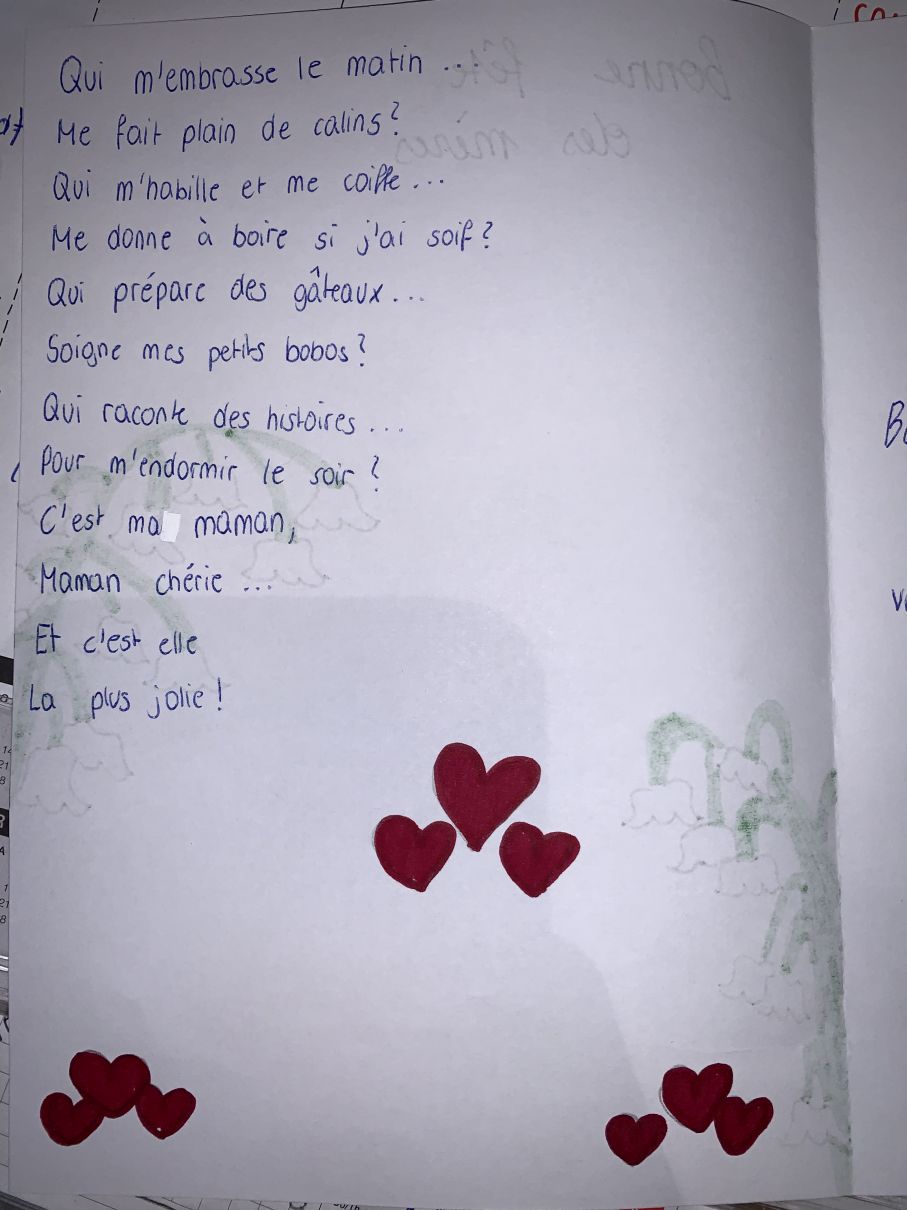 Qui m'embrasse le matin ...
Me fait plain de calins?
Qui m'habille et me coiffe...
Me donne à boire si j'ai soif?
Qui prépare des gâteaux...
Soigne mes petits bobos?
Qui raconte des histoires...
Pour m'endormir le soir?
C'est ma maman,
Maman chérie ...
Et c'est elle
La plus jolie!
bonne fête
des mères